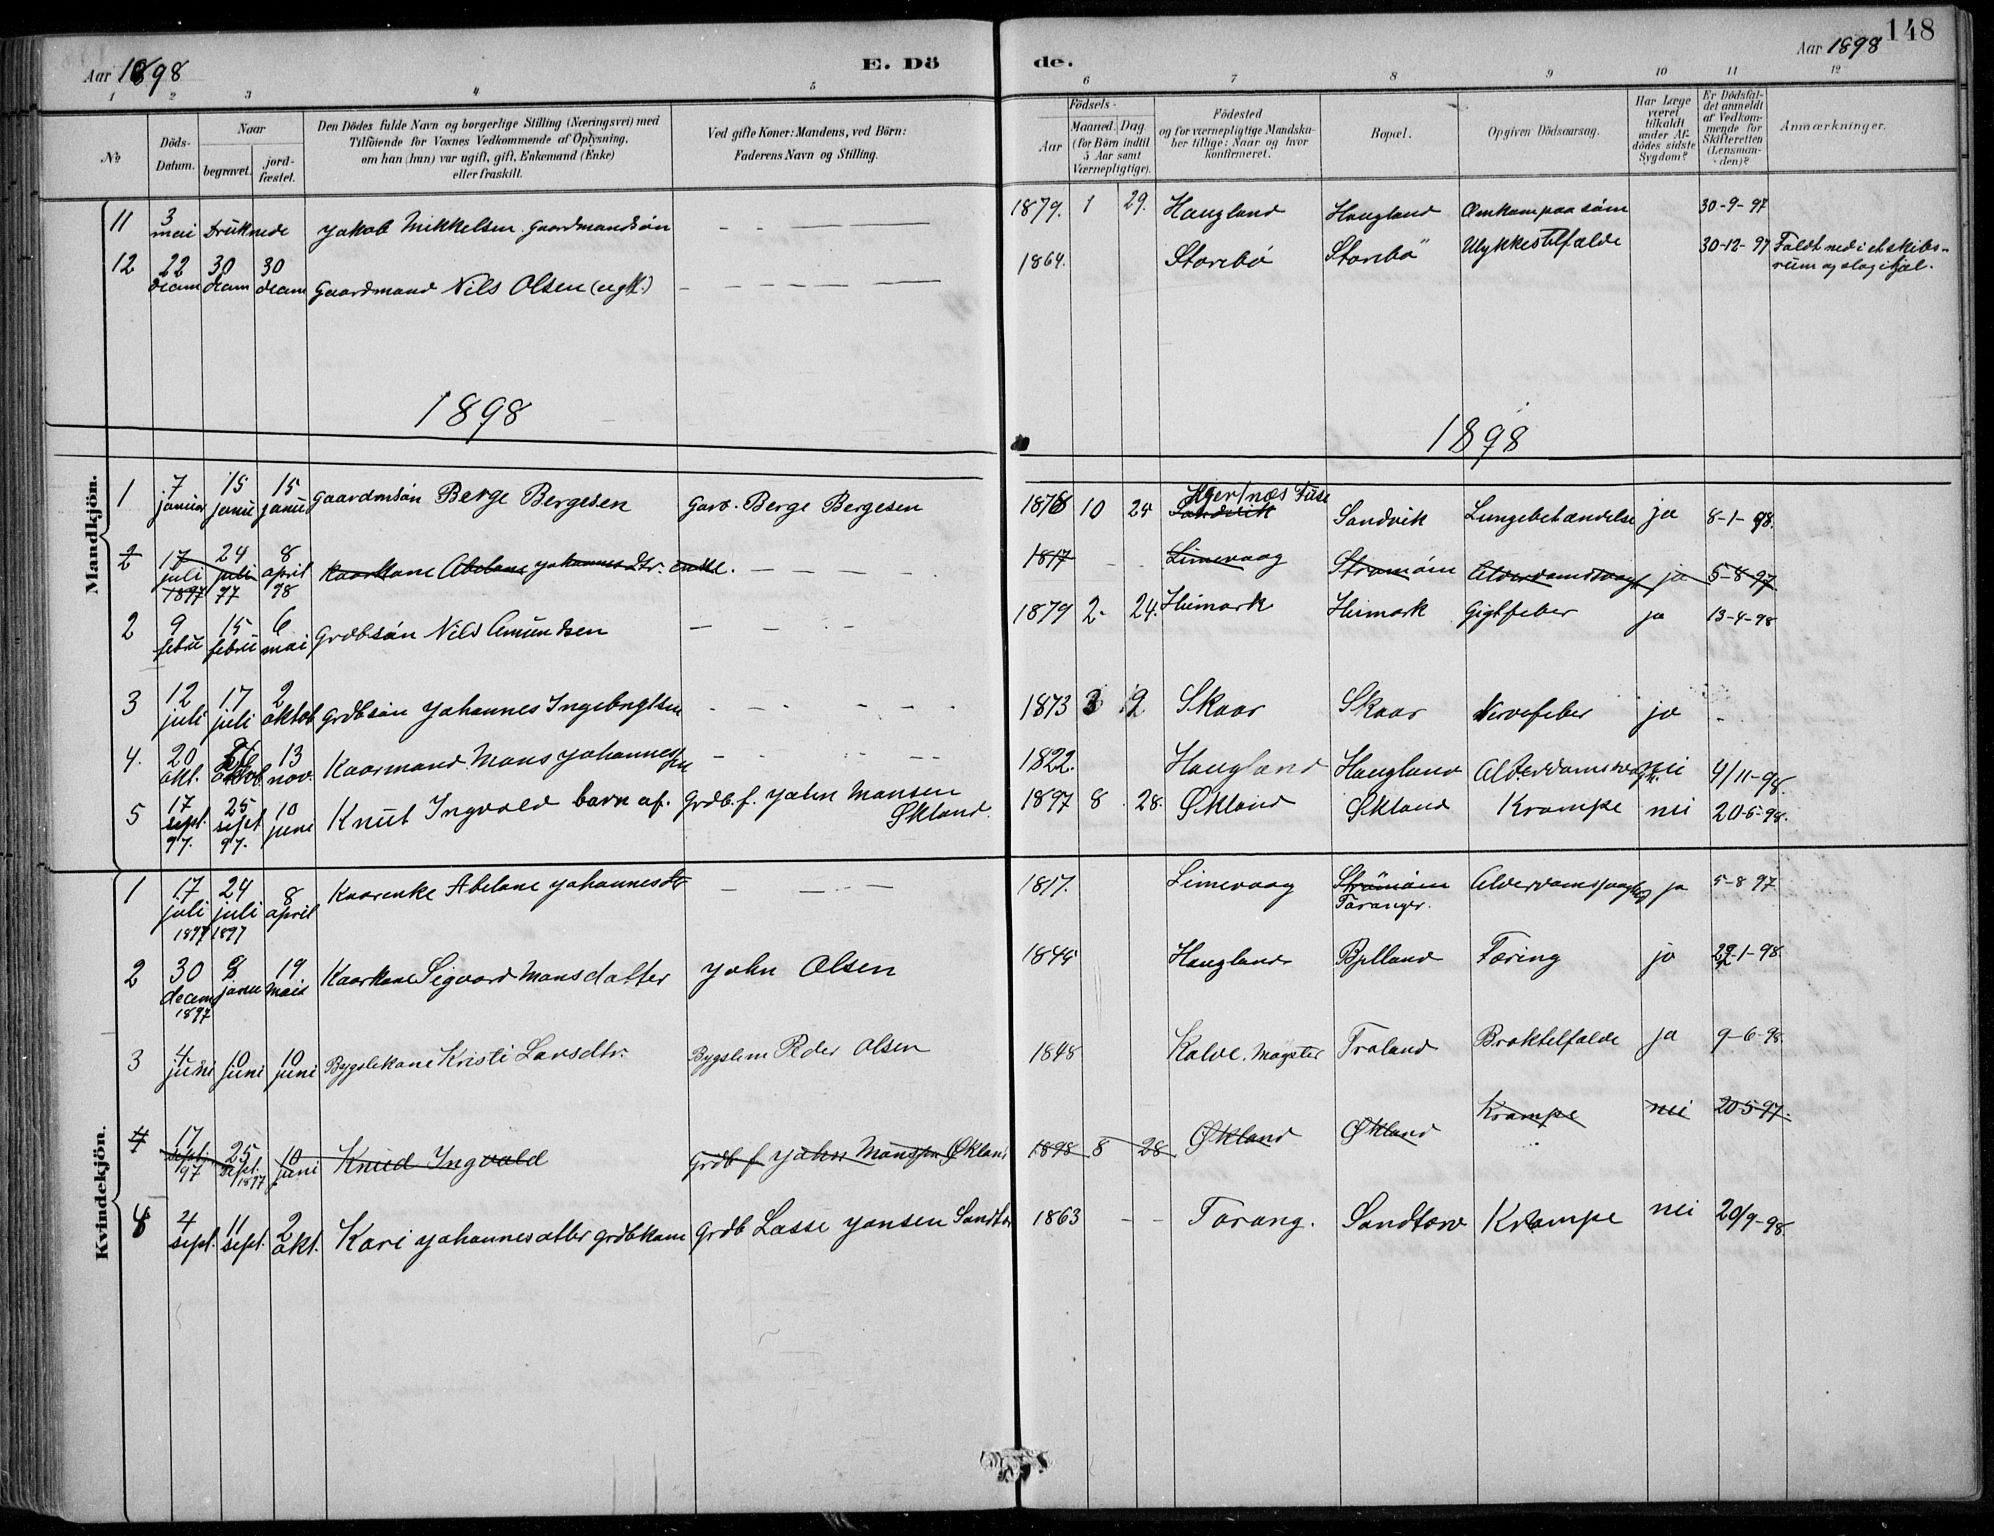 Aar 1898
E. Dö
de.
Aar 1898
148
1 2 3 4 5 6 7 8 9 10 11 12
No
Döds-Datum.
Naar
begravet.
jord-fæstet.
Den Dödes fulde Navn og borgerlige Stilling (Næringsvei) med
Tilföiende for Voxnes Vedkommende af Oplysning,
om han (hun) var ugift, gift, Enkemand (Enke)
eller fraskilt.
Ved gifte Koner: Mandens, ved Börn:
Faderens Navn og Stilling.
Födsels-
Aar
Maaned. Dag.
(for Börn indtil
5 Aar samt
Værnepligtige).
Födested
og for værnepligtige Mandska-
ber tillige: Naar og hvor
konfirmeret.
Bopæl.
Opgiven Dödsaarsag.
Har Læge
været
tilkaldt
under Af-
dödes sidste
Sygdom?
Er Dödsfal-
det anmeldt
af Vedkom-
mende for
Skifteretten
(Lensman-
den)?
Anmærkninger.
11 3 mai Druknede Jakob Mikkelsen Gaardmandsøn 1879. 1 29. Haugland Haugland Omkom paa søen 30-9-97
12 22 decem 30 decem 30 decem Gaardmand Nils Olsen (ugft.) 1864. Storebø Storebö Ulykkestilfælde 30-12-97 Faldt ned i et skibs-
rum og slog ihjel.
1898
1898
Mandkjön.
1 7 januar 15 janu 15 janu Gaardmsøn Berge Bergesen Garb. Berge Bergesen 1878 10 25 Sandvik Sandvik Lungebetændelse ja 8-1-98.
2 17 juli 1897 24 juli 97 8 april 98 Kaarkone Abelone Johannesdtr. enke. 1817 Limevaag Strømøen Alderdomssvagh ja 5-8-97
2 9 febru 15 febru 6 mai Grdbsøn Nils Amundsen 1879 2 24. Heimark Heimark Gigtfeber ja 13-4-98
3 12 juli 17 juli 2 oktob Grdbsøn Johannes Ingebrgtsen 1873 3 9 Skaar Skaar Nervefeber ja
4. 20 okt. 26 oktob 13 nov. Kaarmand Mons Johannessen 1822. Haugland Haugland Alderdomssvagh nei 4/11-98.
5 17 sept. 97. 25 sept 97. 10 juni Knut Ingvald barn af. Grdb. f. John Monsen
Økland. 1897 8 28. Økland Økland Krampe nei 20-5-98.
Kvindekjön.
1 17 juli 1897 24 juli 1897 8 april Kaarenke Abelone Johannesdtr 1817. Limevaag Strømøen
Toranger. Alderdomssvaghed ja 5-8-97
2 30 decem 1897 8 janu 19. mai Kaarkone Sigvard Monsdatter John Olsen 1845 Haugland Bjelland Tæring ja 22-1-98.
3 4 juni 10 juni 10 juni Bygslekone Kristi Larsdtr. Bygslem Peder Olsen 1848 Kalve. Møgster Troland Broktilfælde ja 9-6-98.
4 17 sept. 97 25 sept. 1897 10 juni Knud Ingvald Grdb f John Monsen Økland 1898 8 28 Økland Økland Krampe nei 20-5-97.
4 4 sept. 11 sept. 2 okt. Kari Johannesdatter grdbkone Grdb Lasse Jansen Sandtor 1863 Torang. Sandtorv Krampe nei 20/9-98.